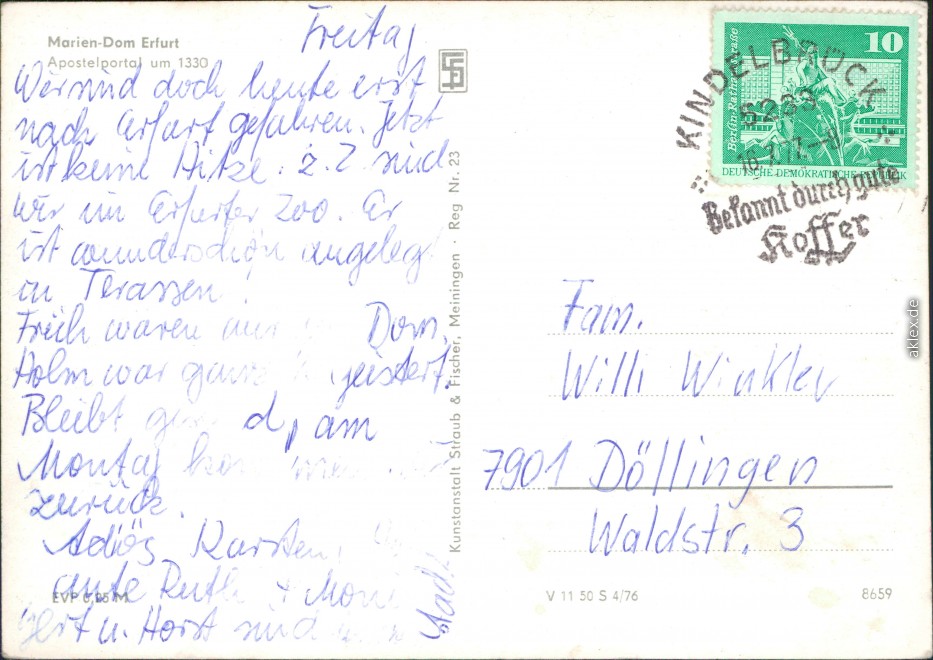 Marien-Dom Erfurt
Apostelportal um 1330
Freitag
Wir sind doch heute erst
nach Erfurt gefahren. Jetzt
ist keine Hitze. z. Z. sind
wir im Erfurter Zoo. Er
ist wunderschön angelegt
in Terassen!
Früh waren wir Dom.
Holm war ganz geistert.
Bleibt am
Montag
zurück.
Adiös Karsten,
Ruth +
u. Horst sind
EVP 0,25 M
Kunstanstalt Straub & Fischer, Meiningen · Reg Nr. 23
10
Berlin-Rathausstraße
DEUTSCHE DEMOKRATISCHE REPUBLIK
KINDELBRÜCK
5233
Bekannt durch gute
Koffer
Fam.
Willi Winkler
7901 Döllingen
Waldstr. 3
V 11 50 S 4/76
8659
aklex.de